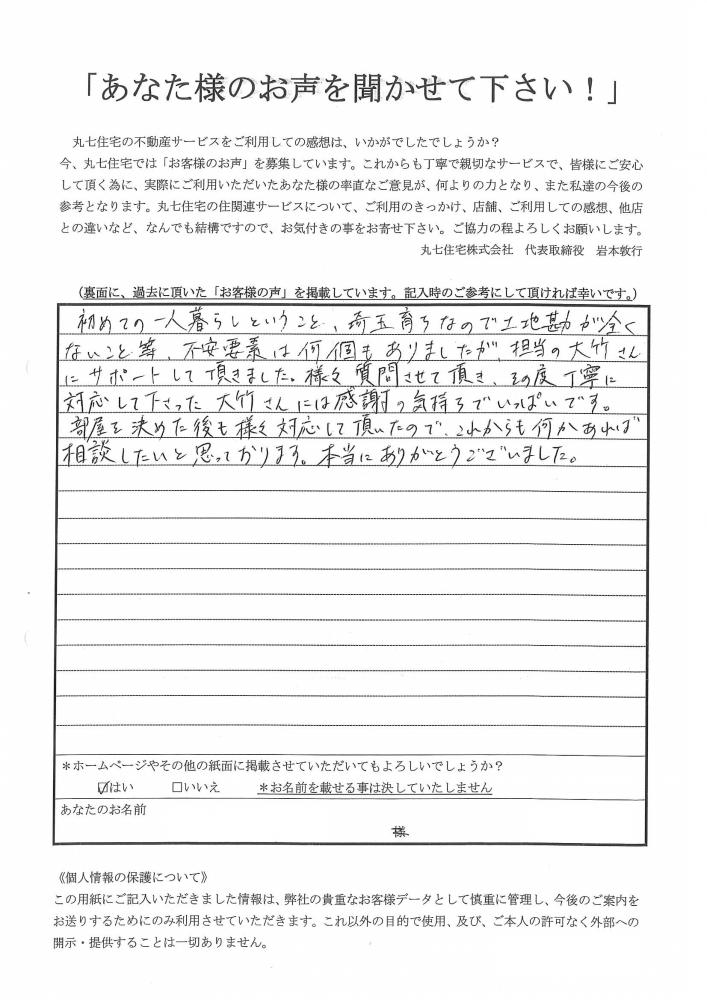 「あなた様のお声を聞かせて下さい！」
丸七住宅の不動産サービスをご利用しての感想は、いかがでしたでしょうか？
今、丸七住宅では「お客様のお声」を募集しています。これからも丁寧で親切なサービスで、皆様にご安心
して頂く為に、実際にご利用いただいたあなた様の率直なご意見が、何よりの力となり、また私達の今後の
参考となります。丸七住宅の住関連サービスについて、ご利用のきっかけ、店舗、ご利用しての感想、他店
との違いなど、なんでも結構ですので、お気付きの事をお寄せ下さい。ご協力の程よろしくお願いします。
丸七住宅株式会社　代表取締役　岩本敦行
（裏面に、過去に頂いた「お客様の声」を掲載しています。記入時のご参考にして頂ければ幸いです。）
初めての一人暮らしということ、埼玉育ちなので土地勘が全く
ないこと等、不安要素は何個もありましたが、担当の大竹さん
にサポートして頂きました。様々質問させて頂き、その度丁寧に
対応して下さった大竹さんには感謝の気持ちでいっぱいです。
部屋を決めた後も様々対応して頂いたので、これからも何かあれば
相談したいと思っております。本当にありがとうございました。
＊ホームページやその他の紙面に掲載させていただいてもよろしいでしょうか？
☑はい　□いいえ　＊お名前を載せる事は決していたしません
あなたのお名前
様
《個人情報の保護について》
この用紙にご記入いただきました情報は、弊社の貴重なお客様データとして慎重に管理し、今後のご案内を
お送りするためにのみ利用させていただきます。これ以外の目的で使用、及び、ご本人の許可なく外部への
開示・提供することは一切ありません。